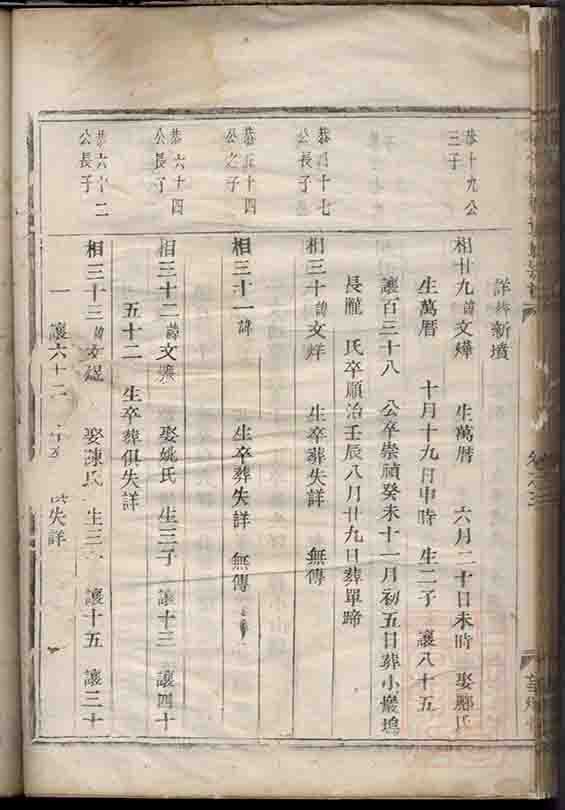 詳 新墳
恭十九公
三子
相廿九諱文燁 生萬曆 六月二十日未時 娶鄭氏
生萬曆 十月十九日申時 生二子 讓八十五
讓百三十八 公卒崇禎癸未十一月初五日葬小巖塢
長隴 氏卒順治壬辰八月廿九日葬單蹄
恭四十七
公長子
相三十諱文烊 生卒葬失詳 無傳
十四
公之子
相三十一諱 生卒葬失詳 無傳
恭六十四
公長子
相三十二諱文 娶姚氏 生三子 讓十三 讓四十
五十二 生卒葬俱失詳
恭六十二
公長子
相三十三諱文煜 娶陳氏 生三 讓十五 讓三十
一 讓六十二 失詳